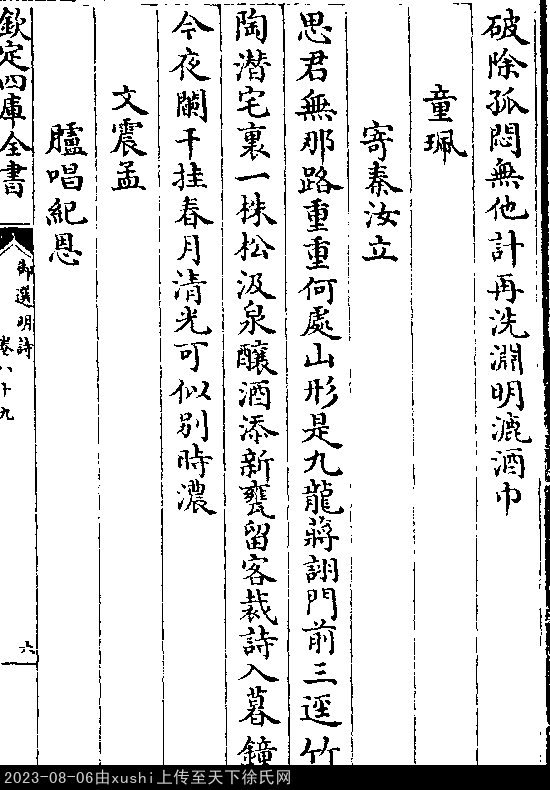 破除孤悶無他計再洗淵明漉酒巾
童珮
寄秦汝立
思君無那路重重何處山形是九龍蔣詡門前三逕竹
陶潛宅裏一株松汲泉釀酒添新甕留客裁詩入暮鐘
今夜闌干挂春月清光可似别時濃
文震孟
臚唱紀恩
欽定四庫全書
御選明詩
卷八十九
六
2023-08-06由xushi上传至天下徐氏网